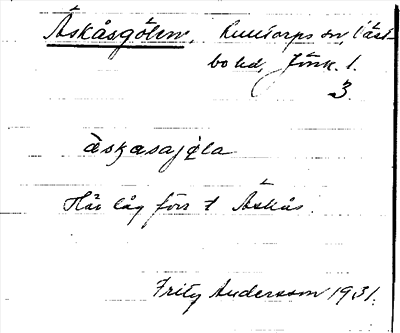 Åskåsgölen, Kulltorps sn, Väst-
bo hd, Jönk. l.
3.
àskæsajøla
Här låg förr t Åskås.
Fritz Andersson 1931.